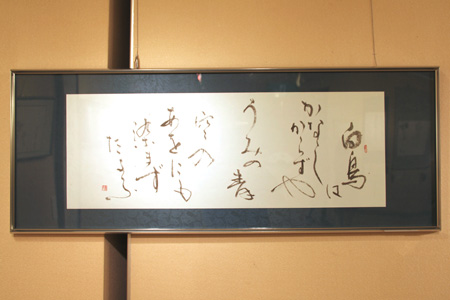 白鳥は
かなし
からずや
うみの青
空の
あをにも
染まず
たゞよふ